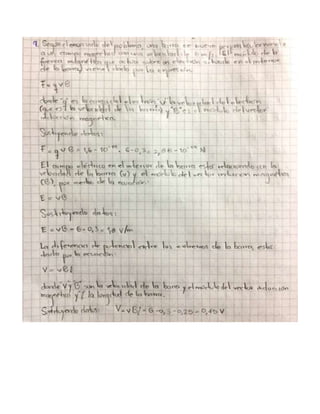 1. Según el enunciado del problema, una barra se mueve perpendicularmente
a un campo magnético con una velocidad de 6 m/s. El módulo de la
fuerza magnética que actúa sobre un electrón situado en el interior
de la barra viene dado por la expresión:
F = q v B
donde "q" es la carga del electrón, v la velocidad del electrón
(que es la velocidad de la barra) y "B" es el módulo del vector
inducción magnética.
Sustituyendo datos:
F = q v B = 1,6 · 10⁻¹⁹ · 6 · 0,3 = 2,88 · 10⁻¹⁹ N
El campo eléctrico en el interior de la barra está relacionado con la
velocidad de la barra (v) y el módulo del vector inducción magnética
(B), por medio de la ecuación:
E = vB
Sustituyendo datos:
E = vB = 6 · 0,3 = 1,8 V/m
La diferencia de potencial entre los extremos de la barra, está
dada por la ecuación:
V = v B l
donde V y "B", son la velocidad de la barra y el módulo del vector inducción
magnética y "l" la longitud de la barra.
Sustituyendo datos: V = v B l = 6 · 0,3 · 0,25 = 0,45 V